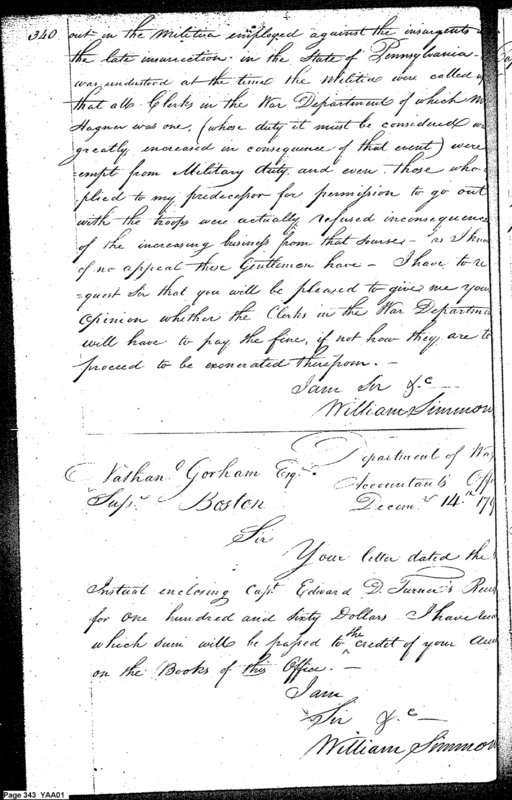 340 out in the Militia employed against the insurgents
the late insurrection in the State of Pennsylvania
was understood at the time the Militia were called
that all Clerks in the War Department of which M
Hagner was one, (whose duty it must be considered
greatly encreased in consequence of that event) were
empt from Military duty and even those who
plied to my predecessor for permission to go out
with the troops were actually refused inconsequence
of the increasing business from that sourse - as I know
of no appeal these Gentlemen have - I have to re
=quest Sir that you will be pleased to give me your
Opinion whether the Clerks in the War Departmen
will have to pay the fine, if not how they are to
proceed to be exonerated therefrom. -
I am Sir &c
William Simmon
Department of Wa
Nathanl Gorham Esqr
Accountants Offi
Supr Boston
Decemr 14th 179
Sir
Your letter dated the
Instant enclosing Capt Edward D. Turner's
for one hundred and sixty Dollars I have
which sum will be passed to the credit of your
on the Books of this Office. -
I am
Sir &c
William Simmon
Page 343 YAA01